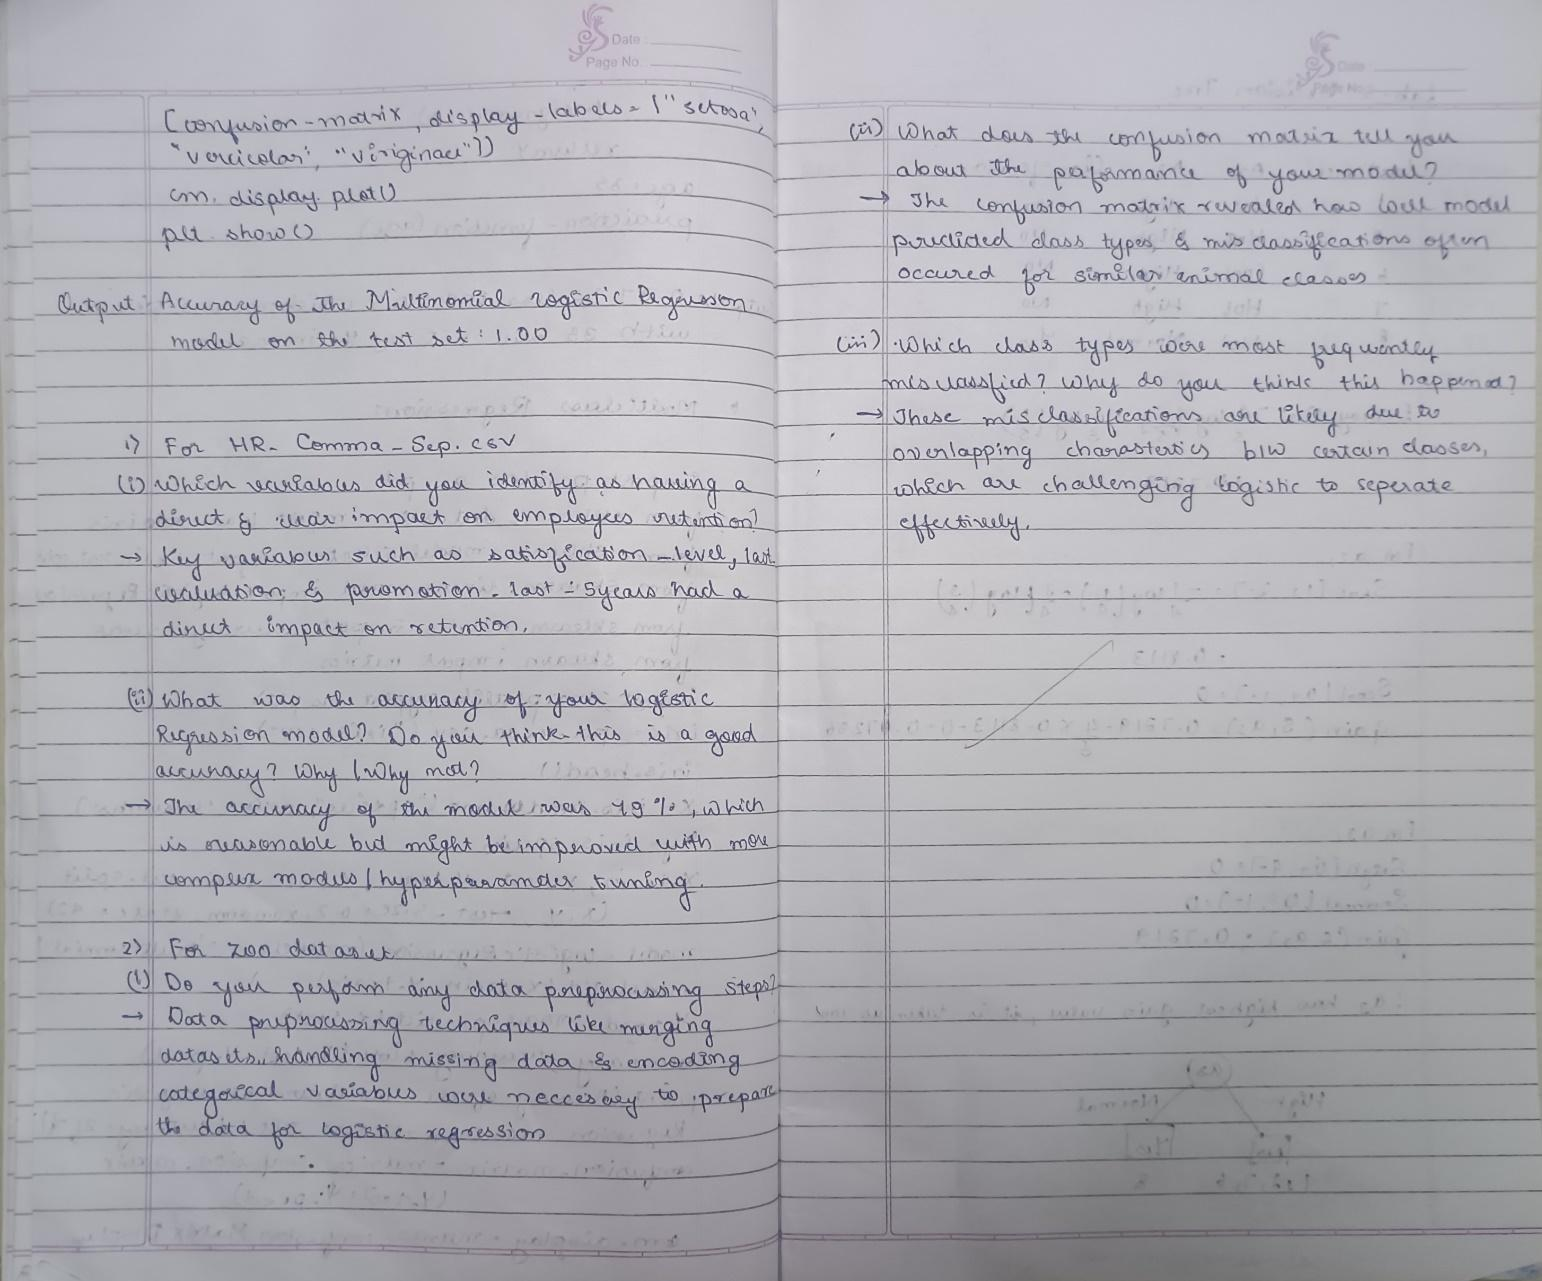 Date
Page No.
(confusion-matrix, display-labels = ["setosa",
"vercicolar", "viriginace"])
cm. display. plot()
plt. show()
Output: Accuracy of the Multinomial logistic Regression
model on the test set: 1.00
1) For HR- Comma - Sep. csv
(i) Which variables did you identify as having a
direct & clear impact on employees retention?
→ Key variables such as satisfication-level, last
evaluation & promotion-last-5years had a
direct impact on retention.
(ii) What was the accuracy of your logistic
Regression model? Do you think this is a good
accuracy? Why / Why not?
→ The accuracy of the model was 79%, which
is reasonable but might be improved with more
complex models / hyperparameter tuning.
2) For zoo dataset
(i) Do you perform any data preprocessing steps?
→ Data preprocessing techniques like merging
datasets, handling missing data & encoding
categorical variables were neccesary to prepare
the data for logistic regression
Date
Page No.
(ii) What does the confusion matrix tell you
about the performance of your model?
→ The confusion matrix revealed how well model
predicted class types & misclassifications often
occured for similar animal classes
(iii) Which class types were most frequently
misclassfied? Why do you think this happened?
→ These misclassifications are likely due to
overlapping charasterics b/w certain classes,
which are challenging logistic to seperate
effectively.